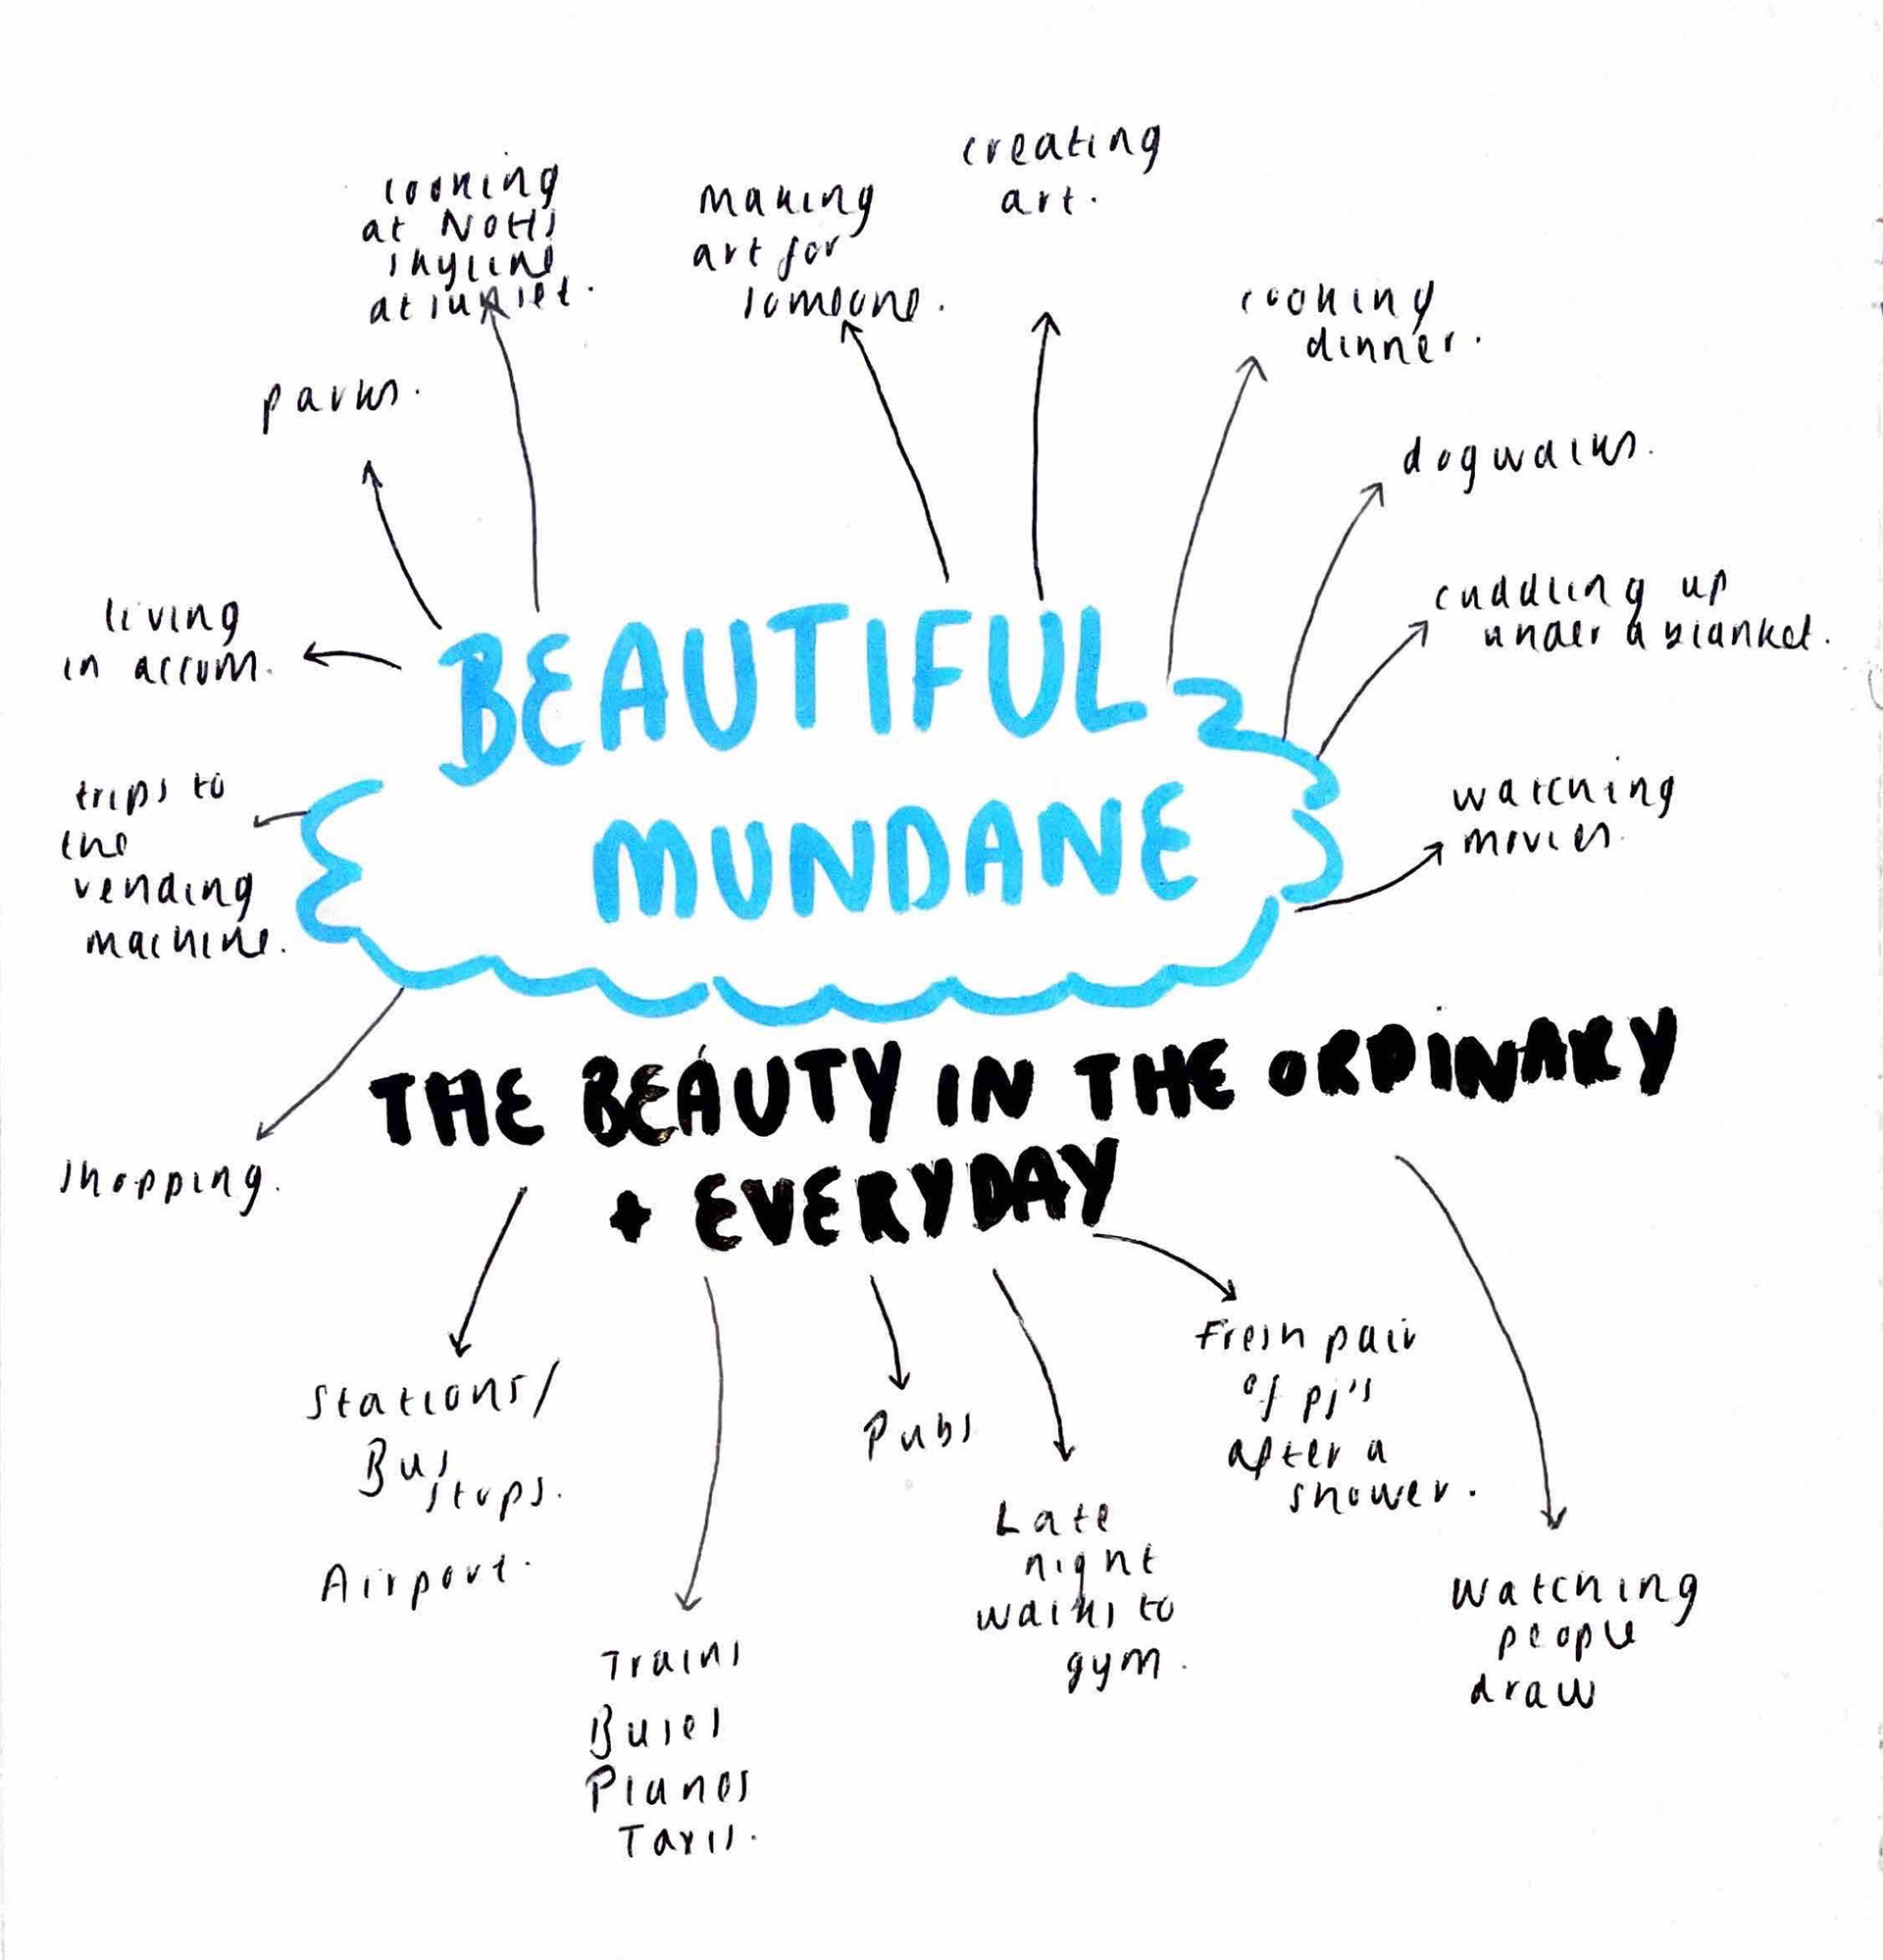 looking
at Notts
skyline
at sunset.
making
art for
someone.
creating
art.
cooking
dinner.
parks.
dog walks.
living
in accom.
cuddling up
under a blanket.
BEAUTIFUL
MUNDANE
trips to
the
vending
machine.
watching
movies.
THE BEAUTY IN THE ORDINARY
+ EVERYDAY
shopping.
Stations/
Bus
stops.
Airport.
Trains
Buses
Planes
Taxis.
Pubs
Late
night
walks to
gym.
Fresh pair
of pj's
after a
shower.
Watching
people
draw